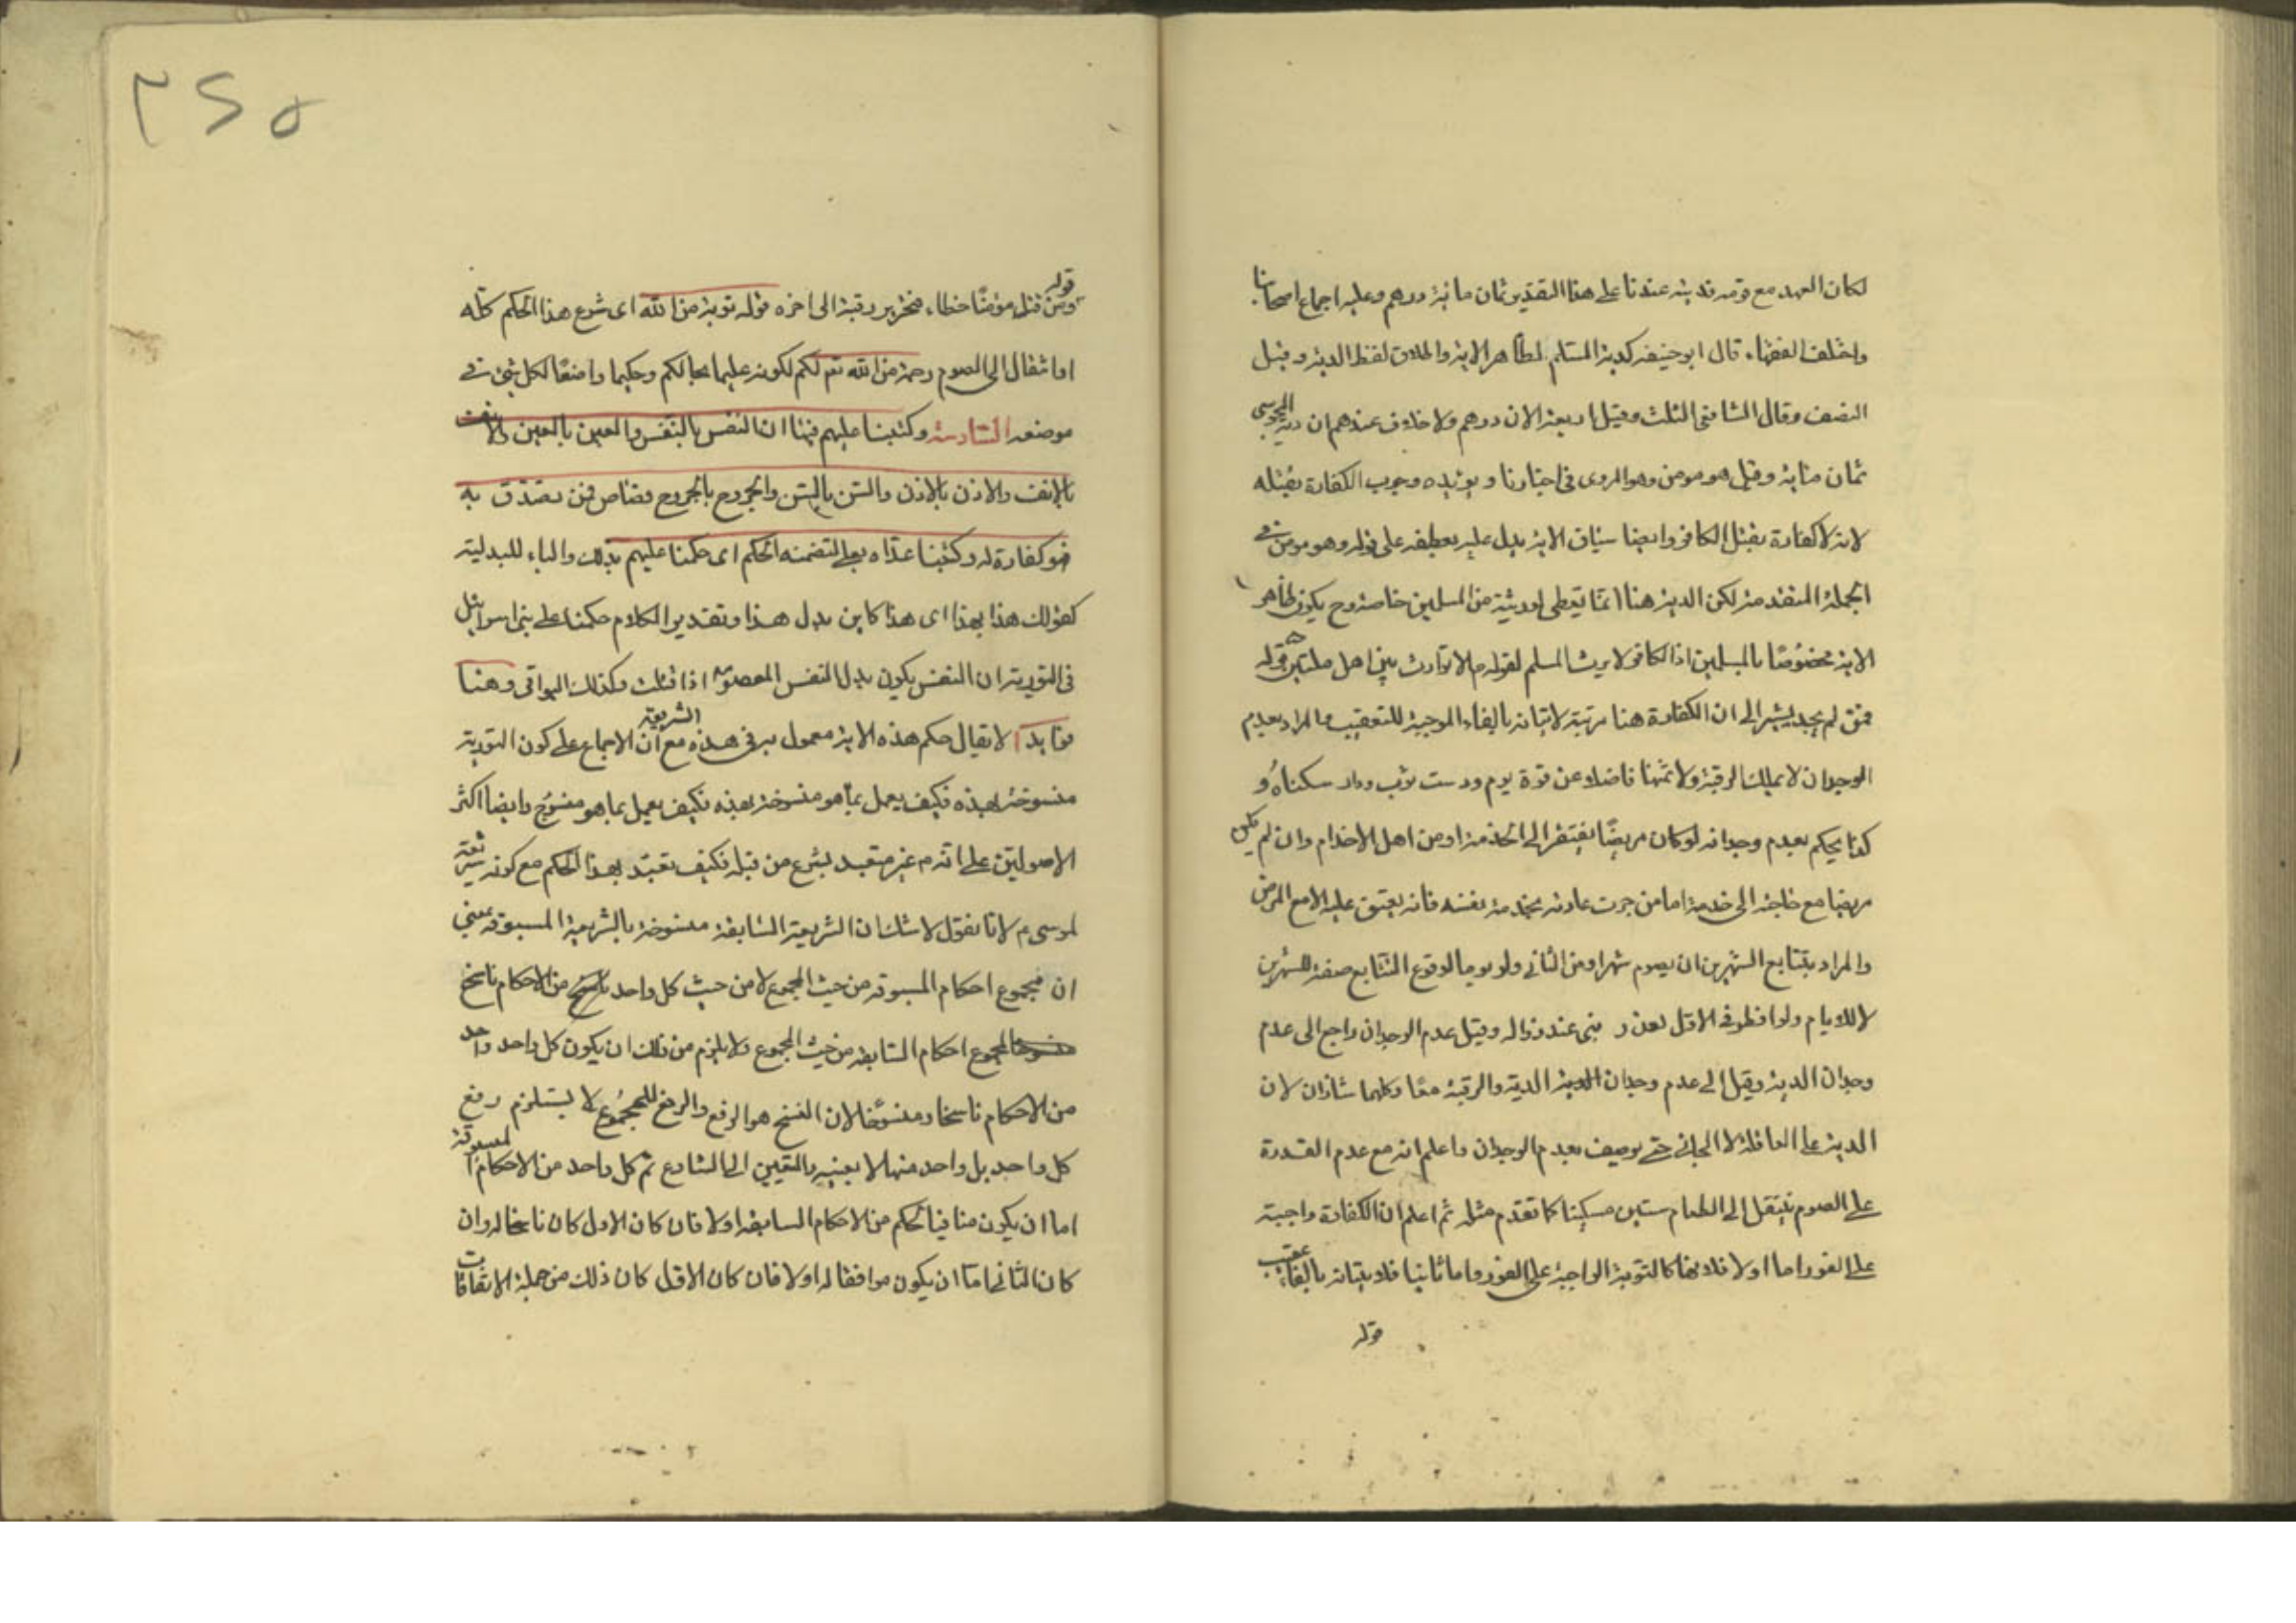 لكان العهد مع قومه فديته عندنا على هذا التقدير ثمان مائة درهم وعليه اجماع اصحابنا
واختلف الفقهاء قال ابو حنيفه كدية المسلم لظاهر الاية والملاق لفظ الدية وقيل
النصف وقال الشافعى الثلث وقيل اربعة الاف درهم ولا خلاف عندهم ان دية المجوسى
ثمان مائة وقيل هو مومن وهو المروى فى اخبارنا ويؤيده وجوب الكفارة بقتله
لانه لا كفارة بقتل الكافر وايضا سياق الاية يدل عليه بعطفه على قوله وهو مومن فى
الجملة المتقدمة لكن الدية هنا انما يعطى لورثته من المسلمين خاصة وح يكون ظاهر
الاية مخصوصا بالمسلمين اذ الكافر لا يرث المسلم لقوله م لا توارث بين اهل ملتين ه قوله
فمن لم يجد يشير الى ان الكفارة هنا مرتبة لاتيانه بالفاء الموجبة للتعقيب والمراد بعدم
الوجدان لا يملك الرقبة ولا ثمنها فاضلا عن قوة يوم ودست ثوب ودار سكناه و
كذا يحكم بعدم وجدانه لو كان مريضا يفتقر الى اخدمة او من اهل الاخدام وان لم يكن
مريضا مع حاجته الى خدمة اما من جرت عادته بخدمة نفسه فانه يعتق عليه الا مع المرض
والمراد بتتابع الشهرين ان يصوم شهرا ومن الثانى ولو يوما لوقوع التتابع صفة للشهرين
لا للايام ولو افطر فى الاول لعذر بنى عند زواله وقيل عدم الوجدان راجع الى عدم
وجدان الدية وقيل الى عدم وجدان الدية والرقبة معا وكلهما شاذان لان
الدية على العاقلة لا الجانى حتى يوصف بعدم الوجدان واعلم انه مع عدم القدرة
على الصوم ينتقل الى اطعام ستين مسكينا كما تقدم مثله ثم اعلم ان الكفارة واجبة
على الفور اما اولا فلانها كالتوبة الواجبة على الفور واما ثانيا فلاتيانه بالفاء عقيب
قوله
٢٤٥
قوله
ومن قتل مؤمنا خطاء فتحرير رقبة الى اخره قوله توبة من الله اى شرع هذا الحكم كله
او انتقال الى الصوم رحمة من الله تع لكم لكونه عليما بحالكم وحكيما واضعا لكل شئ فى
موضعه السادسة وكتبنا عليهم فيها ان النفس بالنفس والعين بالعين والانف
بالانف والاذن بالاذن والسن بالسن والجروح بالجروح قصاص فمن تصدق به
فهو كفارة له وكتبنا عداه بعلى لتضمنه الحكم اى حكمنا عليهم بذلك والباء للبدلية
كقولك هذا بهذا اى هذا كاين بدل هذا وتقدير الكلام حكمنا على بنى اسرائيل
فى التورية ان النفس يكون بدل النفس المعصومه اذا قتلت وكذلك البواقى وهنا
فوايد آ لا يقال حكم هذه الاية معمول به فى هذه الشريعة مع ان الاجماع على كون التورية
منسوخة بهذه فكيف يعمل بما هو منسوخة بهذه فكيف يعمل بما هو منسوخ وايضا اكثر
الاصوليين على انه م غير متعبد بشرع من قبله فكيف تعبد بهذا الحكم مع كونه شريعة
لموسى م لانا نقول لا شك ان الشريعة السابقة منسوخة بالشريعة المسبوقه بمعنى
ان مجموع احكام المسبوقه من حيث المجموع لا من حيث كل واحد من الاحكام ناسخ
لمجموع احكام السابقه من حيث المجموع ولا يلزم من ذلك ان يكون كل واحد واحد
من الاحكام ناسخا ومنسوخا لان النسخ هو الرفع والرفع للمجموع لا يستلزم رفع
كل واحد بل واحد منها لا بعينه والتعيين الى الشارع ثم كل واحد من الاحكام المسبوقة
اما ان يكون منافيا لحكم من الاحكام السابقه اولا فان كان الاول كان ناسخا له وان
كان الثانى اما ان يكون موافقا له اولا فان كان الاول كان ذلك من جملة الاتفاقات